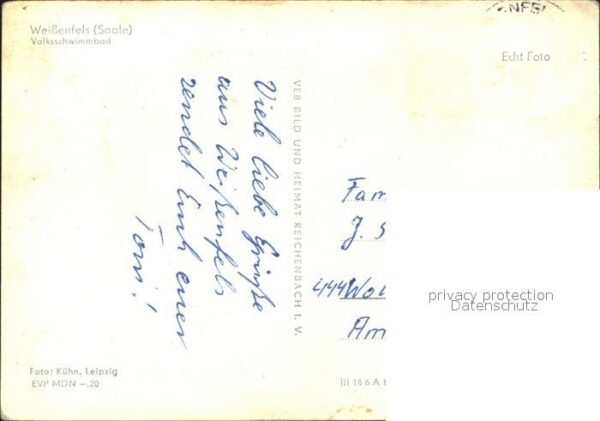 Weißenfels (Saale)
Volksschwimmbad
NFE
Echt Foto
Viele liebe Grüße
aus Weißenfels
sendet Euch euer
Toni!
VEB BILD UND HEIMAT REICHENBACH I. V.
Fam
J. S
444 Wol
Am
privacy protection
Datenschutz
Foto: Kühn, Leipzig
EVP MDN –,20
III 18 6 A 1